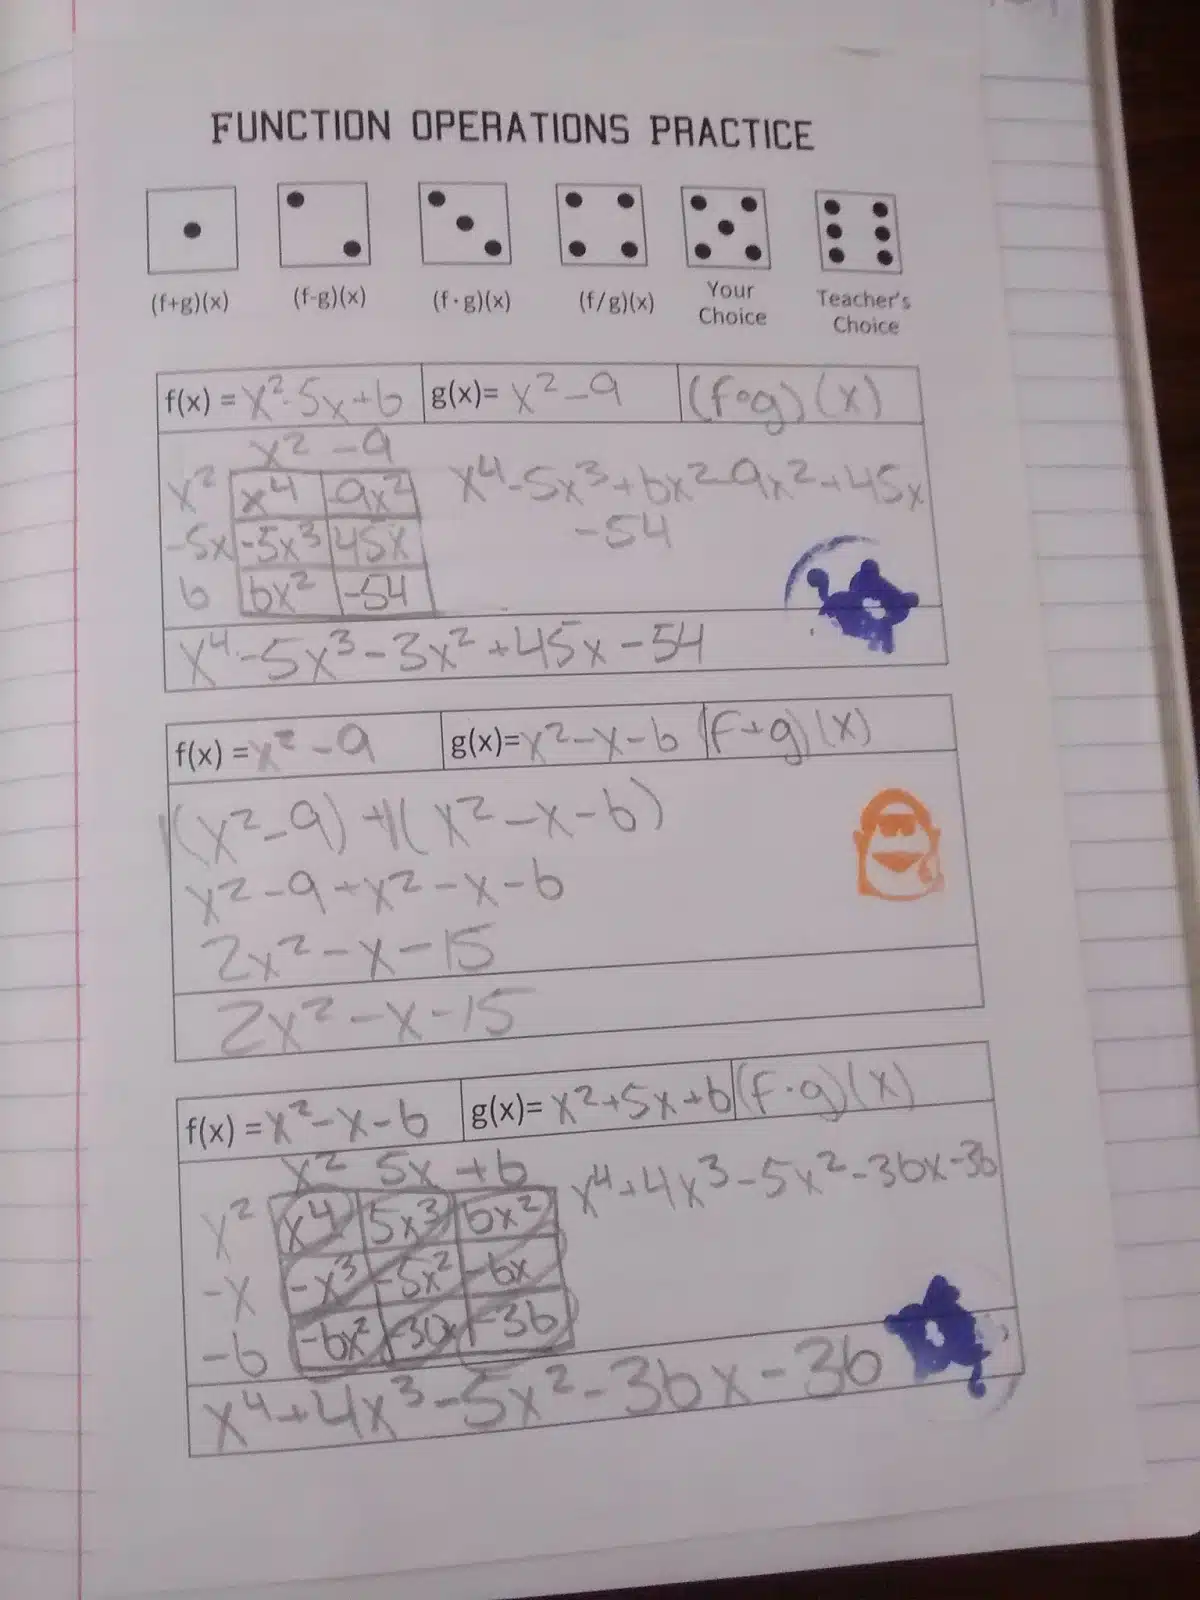 FUNCTION OPERATIONS PRACTICE
(f+g)(x) (f-g)(x) (f·g)(x) (f/g)(x) Your Choice Teacher's Choice
f(x) = x²-5x+6 g(x)= x²-9 (f•g)(x)
x² -9
x² x⁴ -9x² x⁴-5x³+6x²-9x²+45x
-5x -5x³ 45x -54
6 6x² -54
x⁴-5x³-3x²+45x-54
f(x) = x²-9 g(x)= x²-x-6 (f+g)(x)
1(x²-9)+1(x²-x-6)
x²-9+x²-x-6
2x²-x-15
2x²-x-15
f(x) = x²-x-6 g(x)= x²+5x+6 (f·g)(x)
x² 5x +6
x² x⁴ 5x³ 6x² x⁴+4x³-5x²-36x-36
-x -x³ -5x² -6x
-6 -6x² -30x -36
x⁴+4x³-5x²-36x-36